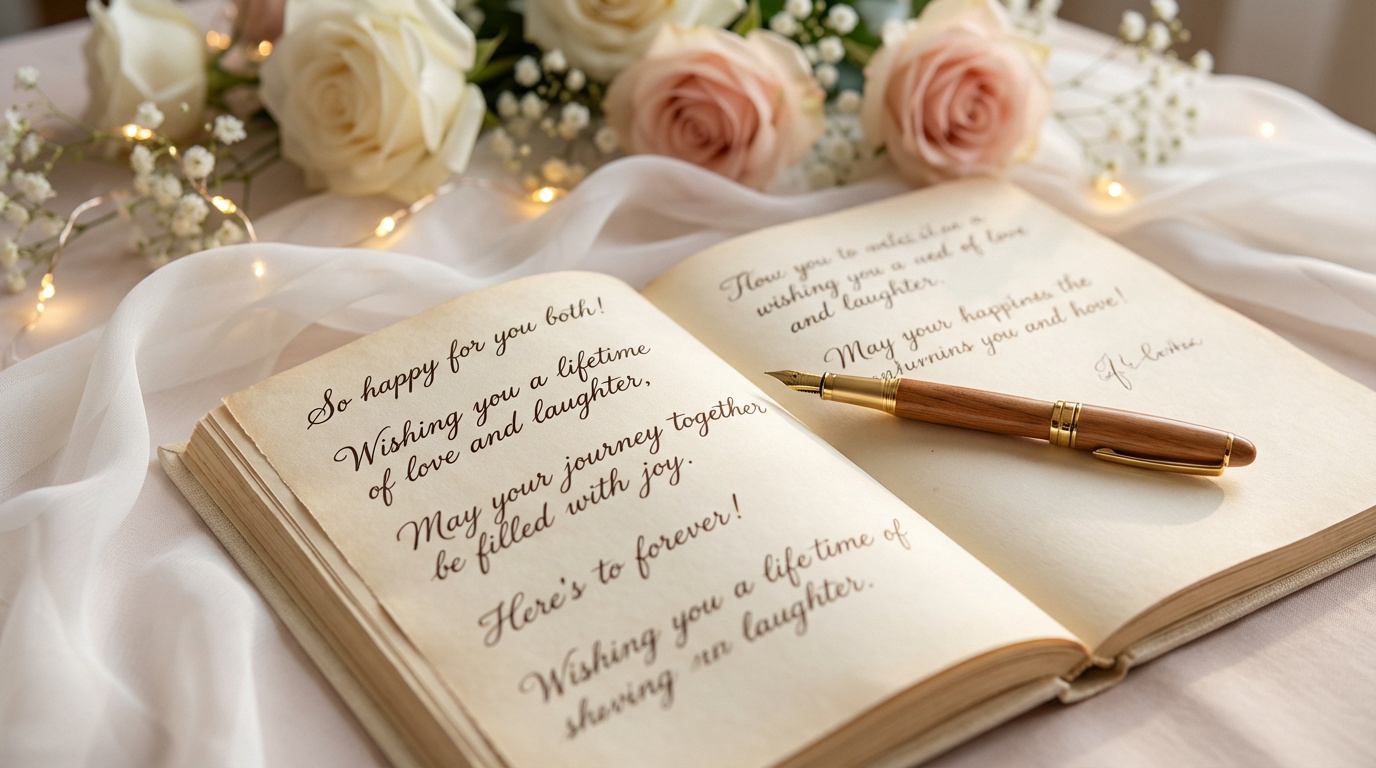 So happy for you both!
Wishing you a lifetime
of love and laughter,
May your journey together
be filled with joy.
Here's to forever!
Wishing you a lifetime of
sheving laughter.
you to
wishing you a of love
and laughter.
May your happines the
you and hove!